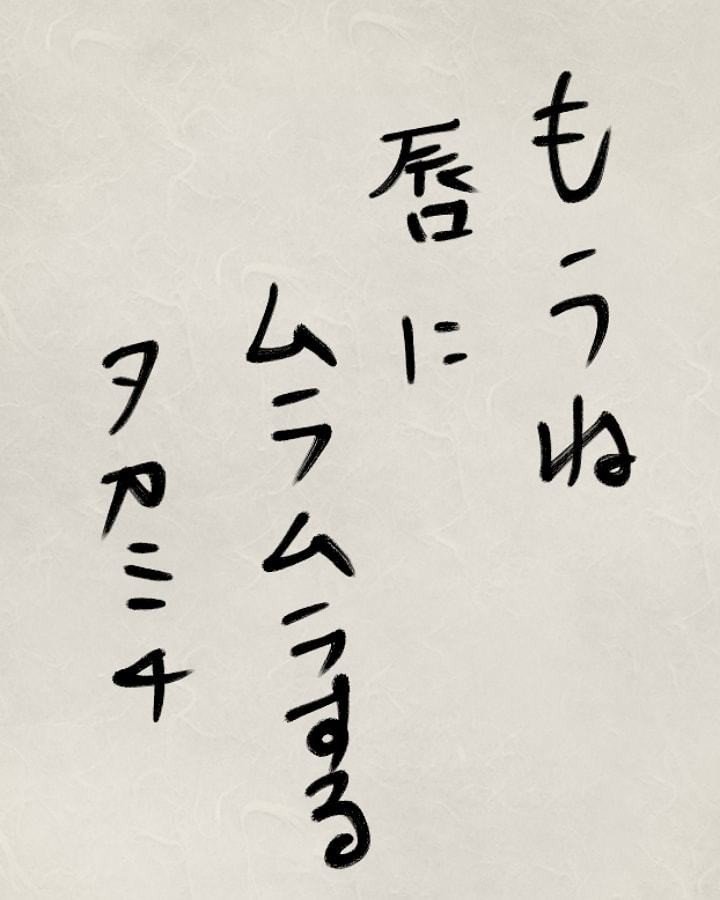 もうね
唇に
ムラムラする
タカミチ